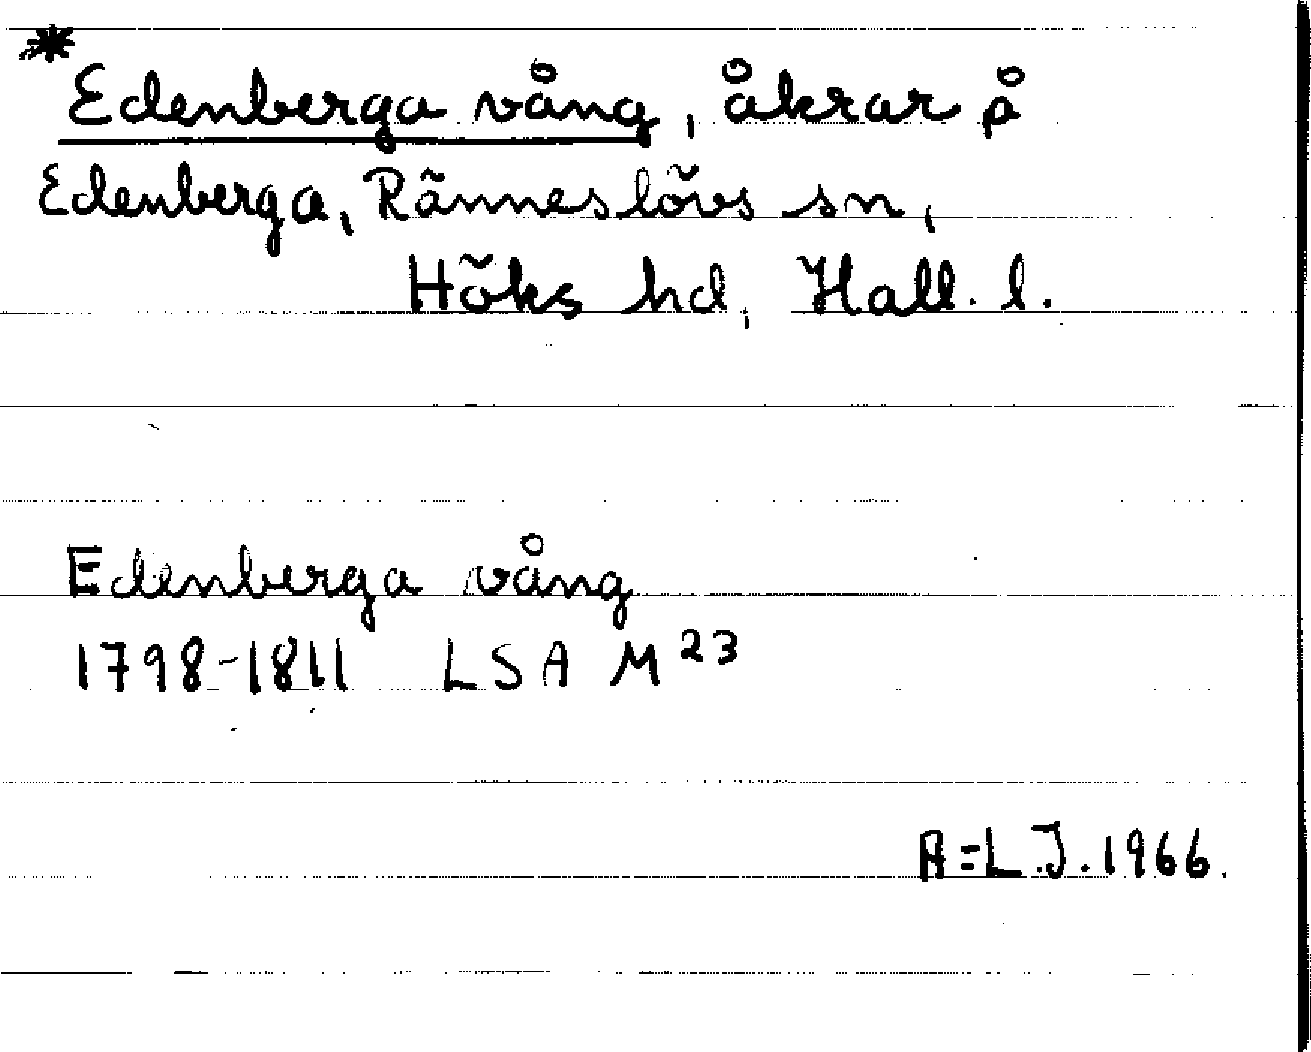 *Edenberga vång, åkrar på
Edenberga, Ränneslövs sn,
Höks hd, Hall. l.
Edenberga vång
1798-1811 LSA M 23
A=L.J. 1966.